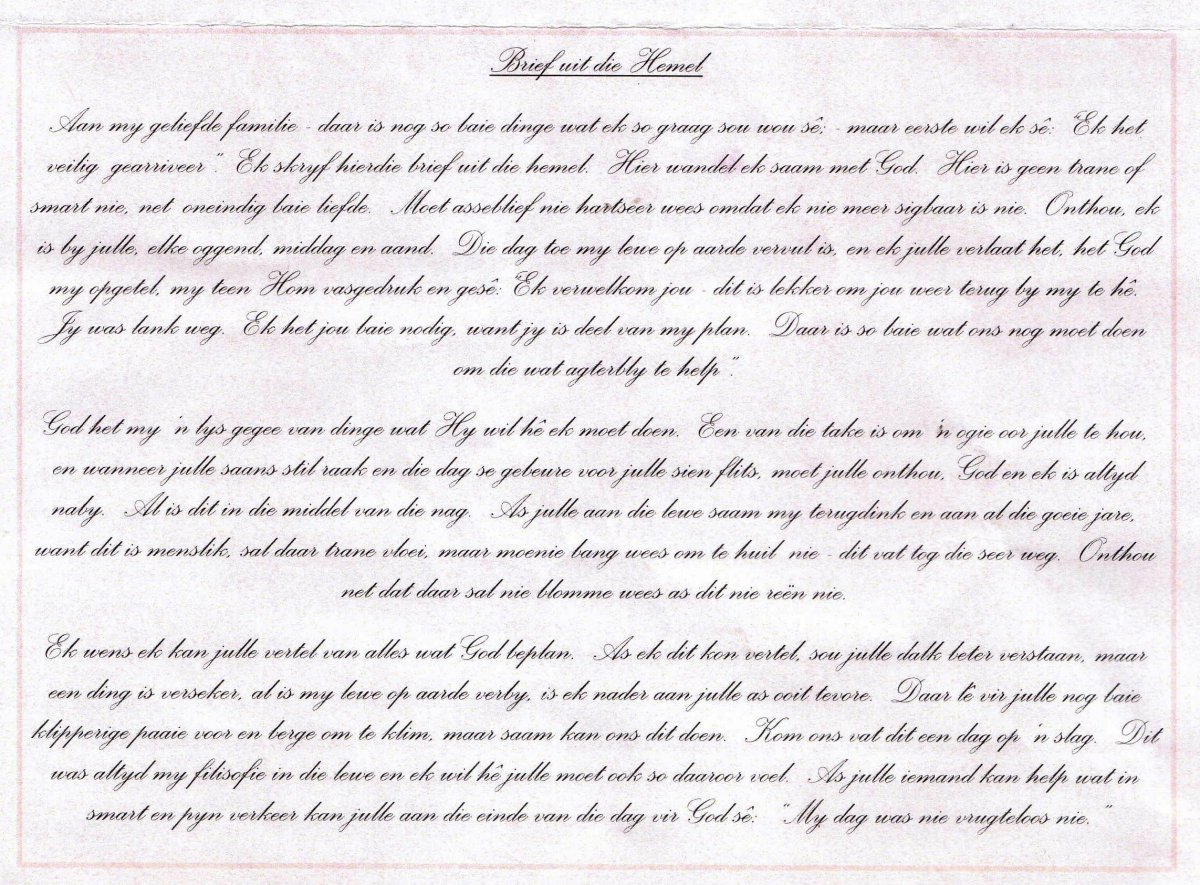 Brief uit die Hemel
Aan my geliefde familie - daar is nog so baie dinge wat ek so graag sou wou sê; - maar eerste wil ek sê: "Ek het
veilig gearriveer". Ek skryf hierdie brief uit die hemel. Hier wandel ek saam met God. Hier is geen trane of
smart nie, net oneindig baie liefde. Moet asseblief nie hartseer wees omdat ek nie meer sigbaar is nie. Onthou, ek
is by julle, elke oggend, middag en aand. Die dag toe my lewe op aarde vervul is, en ek julle verlaat het, het God
my opgetel, my teen Hom vasgedruk en gesê: "Ek verwelkom jou - dit is lekker om jou weer terug by my te hê.
Jy was lank weg. Ek het jou baie nodig, want jy is deel van my plan. Daar is so baie wat ons nog moet doen
om die wat agterbly te help".
God het my 'n lys gegee van dinge wat Hy wil hê ek moet doen. Een van die take is om 'n ogie oor julle te hou,
en wanneer julle saans stil raak en die dag se gebeure voor julle sien flits, moet julle onthou, God en ek is altyd
naby. Al is dit in die middel van die nag. As julle aan die lewe saam my terugdink en aan al die goeie jare,
want dit is menslik, sal daar trane vloei, maar moenie bang wees om te huil nie - dit vat tog die seer weg. Onthou
net dat daar sal nie blomme wees as dit nie reën nie.
Ek wens ek kan julle vertel van alles wat God beplan. As ek dit kon vertel, sou julle dalk beter verstaan, maar
een ding is verseker, al is my lewe op aarde verby, is ek nader aan julle as ooit tevore. Daar lê vir julle nog baie
klipperige paaie voor en berge om te klim, maar saam kan ons dit doen. Kom ons vat dit een dag op 'n slag. Dit
was altyd my filisofie in die lewe en ek wil hê julle moet ook so daaroor voel. As julle iemand kan help wat in
smart en pyn verkeer kan julle aan die einde van die dag vir God sê: "My dag was nie vrugteloos nie."